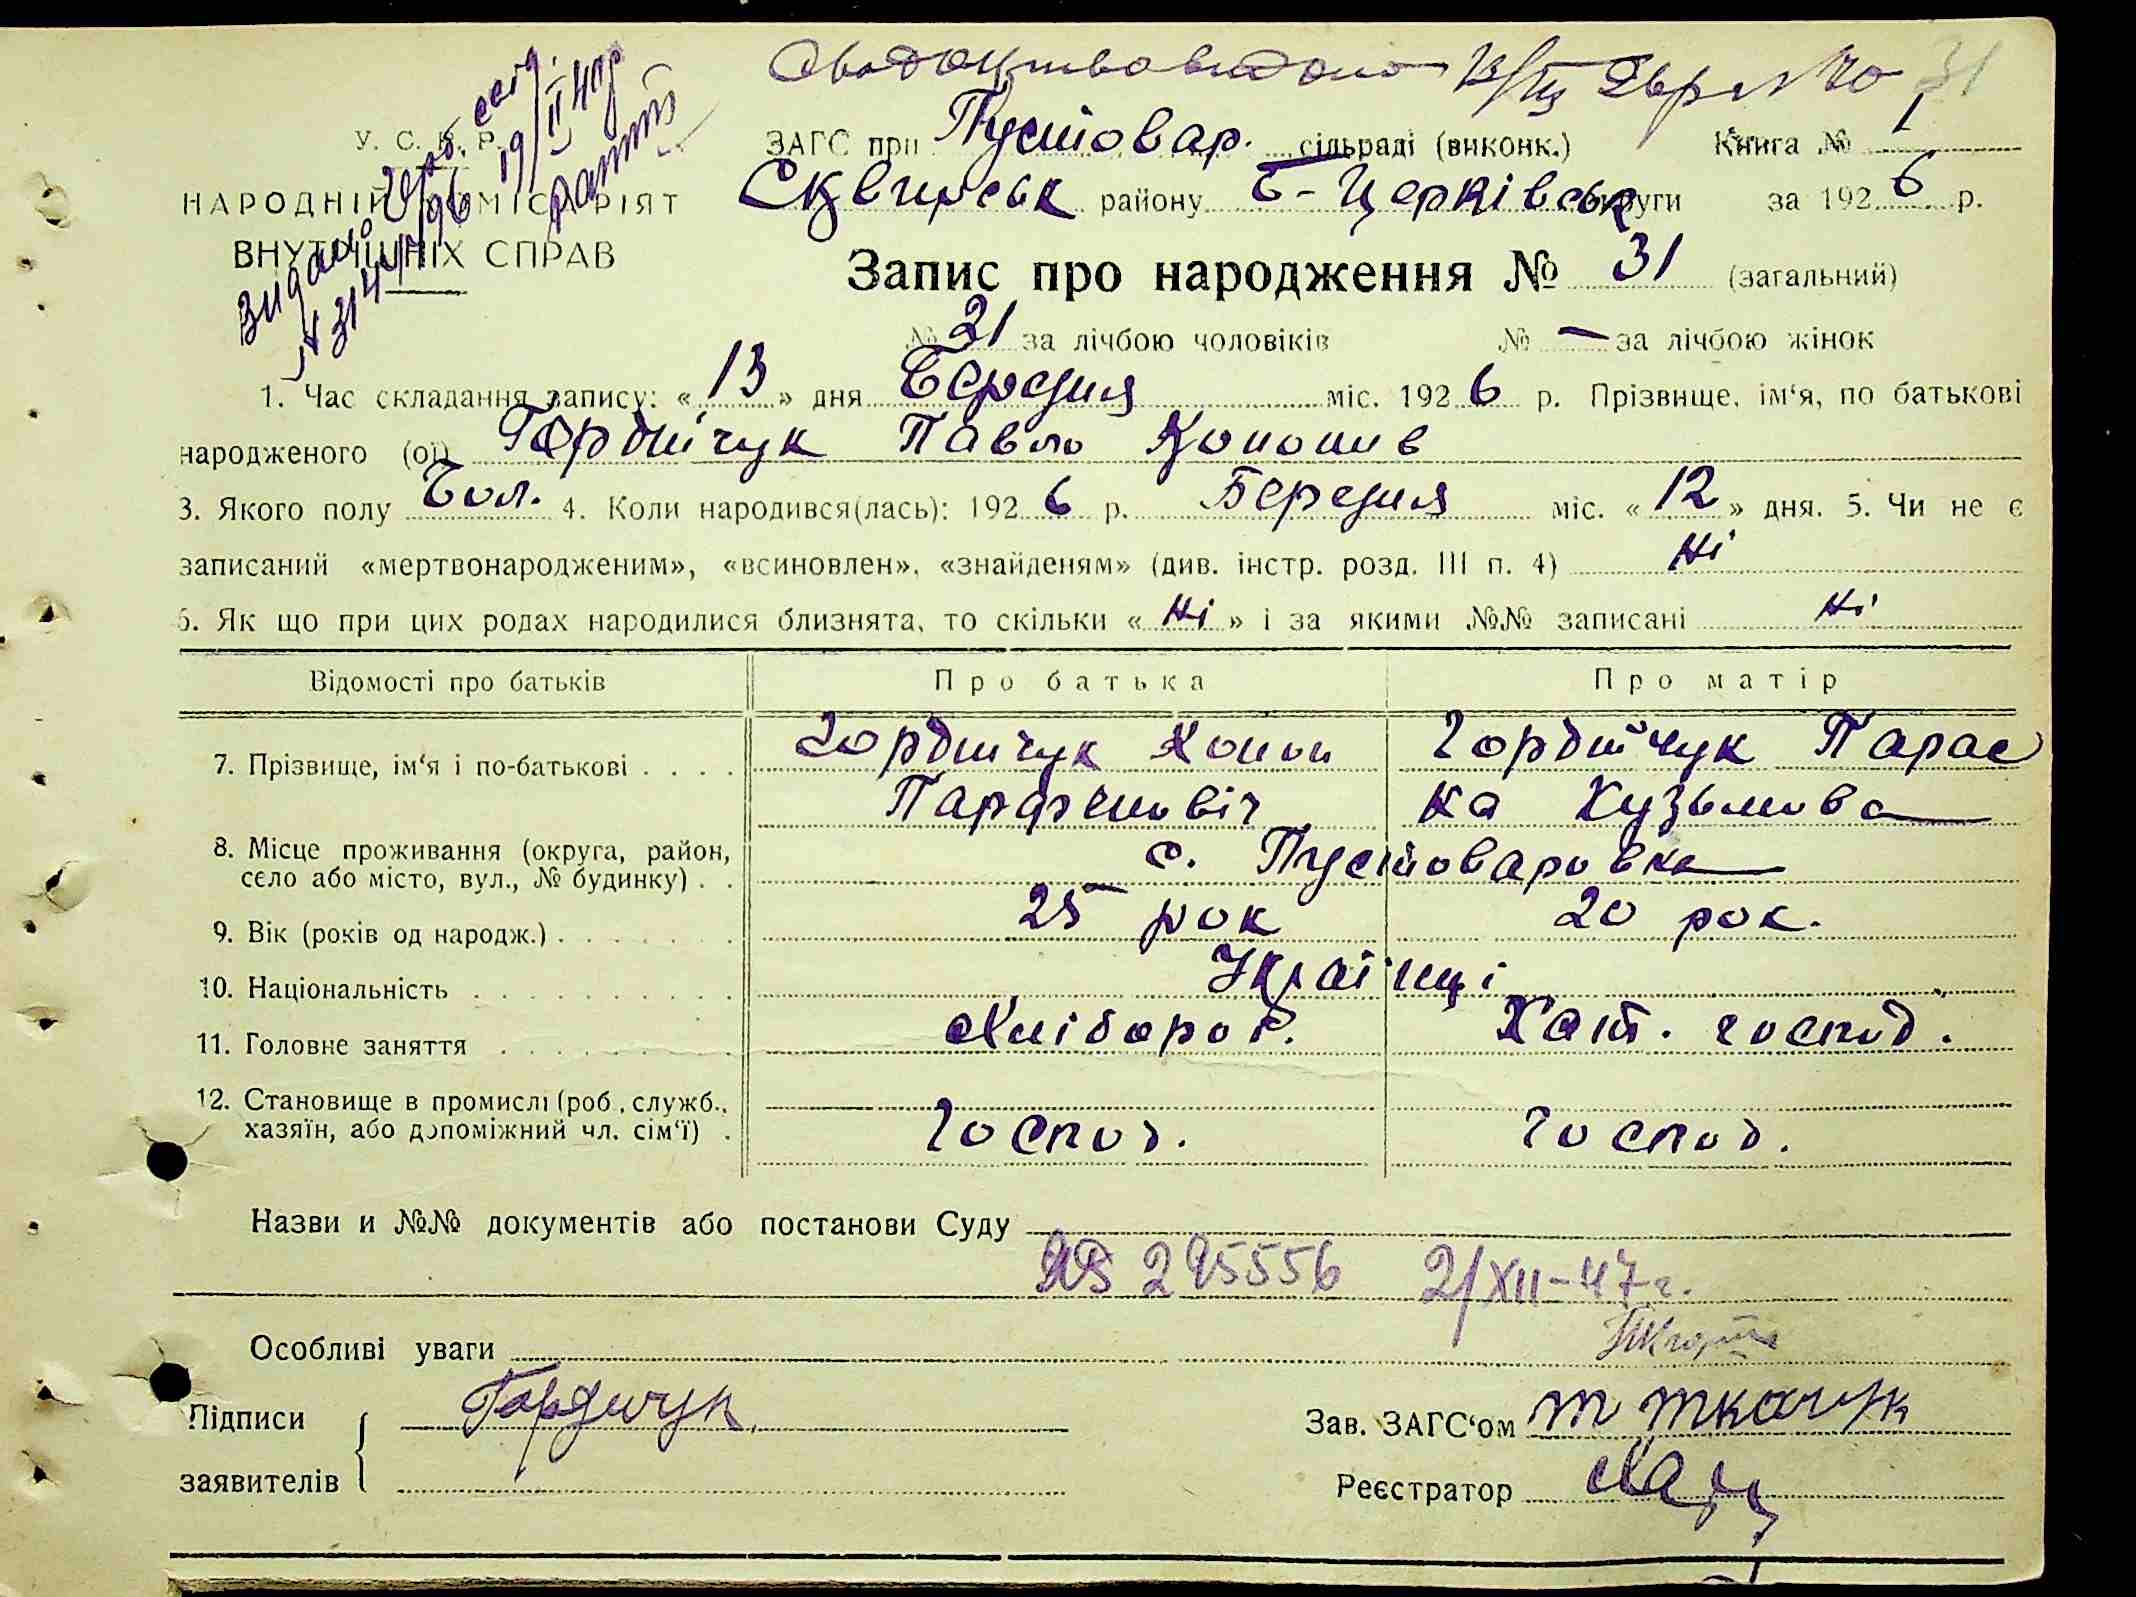 31
ЗАГС при Пустовар. сільраді (виконк.) Книга № 1
У. С. Р. Р.
НАРОДНІЙ КОМІСАРІЯТ
ВНУТРІШНІХ СПРАВ
Сквирськ району Б-Церківськ округи за 1926 р.
Запис про народження № 31 (загальний)
№ 21 за лічбою чоловіків № — за лічбою жінок
1. Час складання запису: «13» дня Березня міс. 1926 р. Прізвище, ім‘я, по батькові
народженого (ої) Гордійчук Павло Кононів
3. Якого полу Чол. 4. Коли народився(лась): 1926 р. Березня міс. «12» дня. 5. Чи не є
записаний «мертвонародженим», «всиновлен», «знайденям» (див. інстр. розд. III п. 4) Ні
6. Як що при цих родах народилися близнята, то скільки «Ні» і за якими №№ записані Ні
Відомості про батьків Про батька Про матір
7. Прізвище, ім‘я і по-батькові . . . . Гордийчук Конон Гордийчук Парас
Парфеновіч ка Кузьмова
8. Місце проживання (округа, район,
село або місто, вул., № будинку) . . с. Пустоваровка
9. Вік (років од народж.) . . . . . . . 25 рок 20 рок.
10. Національність . . . . . . . . . . Українці
11. Головне заняття . . . . . . . . . Хлібороб. Хат. господ.
12. Становище в промислі (роб., служб.,
хазяїн, або допоміжний чл. сім‘ї) . Господ. Господ.
Назви и №№ документів або постанови Суду
295556 2/XII-47г.
Особливі уваги
Підписи Гордичук Зав. ЗАГС‘ом Т Ткачук
заявителів Реєстратор